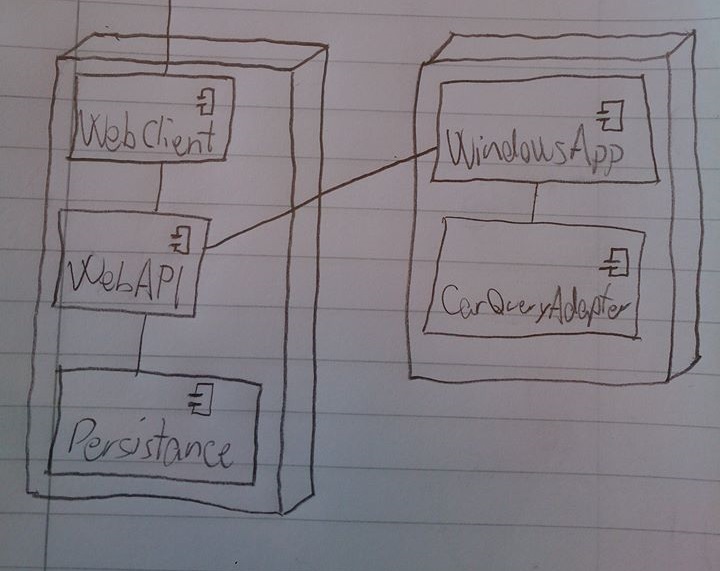 WebClient
WebAPI
Persistance
WindowsApp
CarQueryAdapter